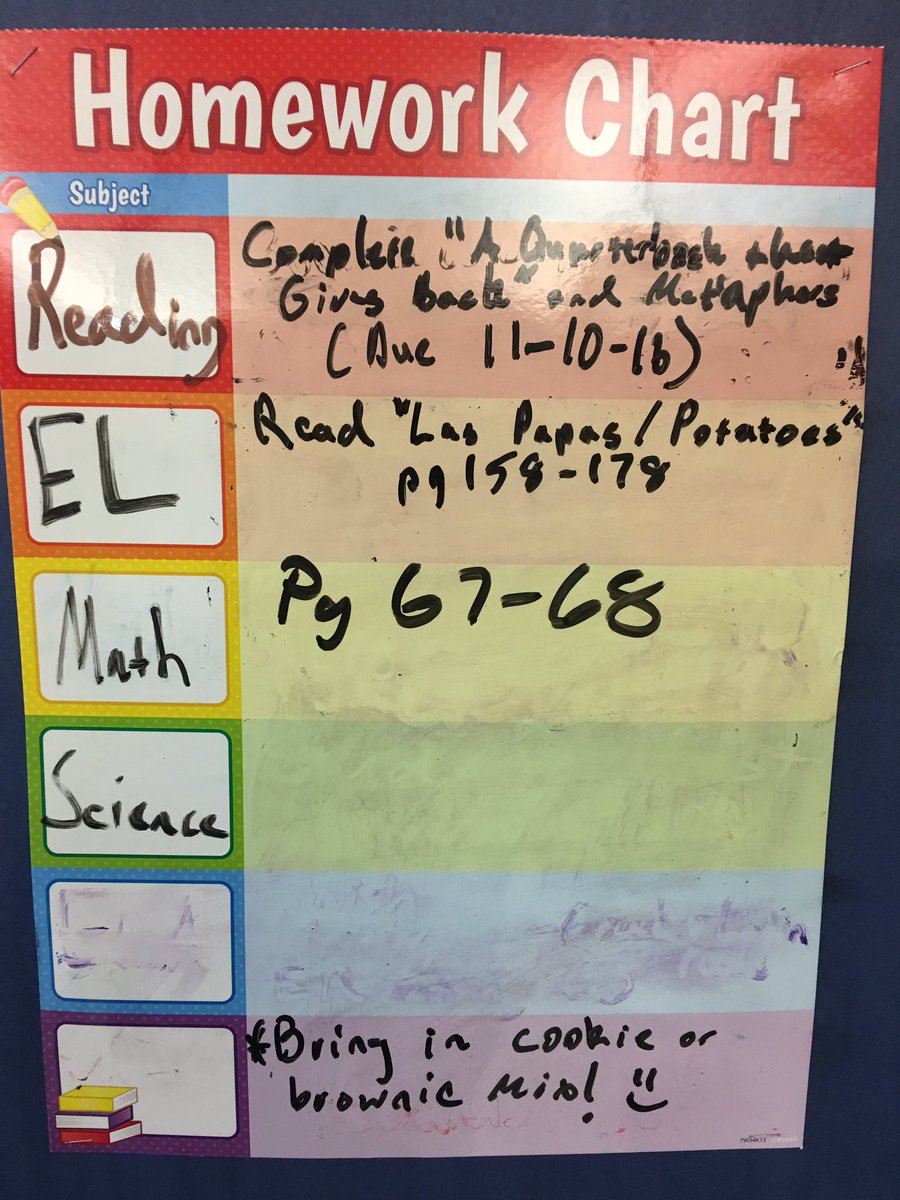 Homework Chart
Subject
Reading
Complete "A Quarterback that
Gives Back" and Metaphors
(Due 11-10-16)
EL
Read "Las Papas/Potatoes"
pg 158-178
Math
Pg 67-68
Science
*Bring in cookie or
brownie mix! 
TW34K13